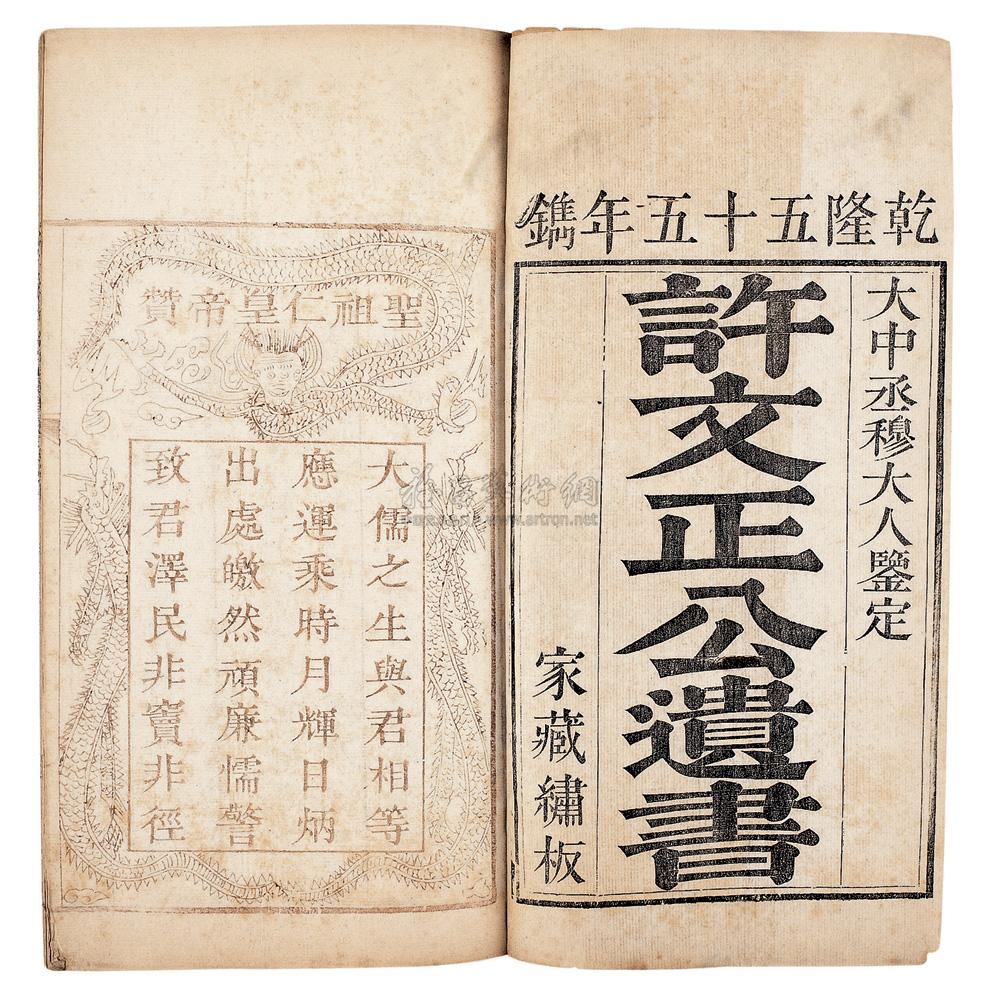 乾隆五十五年鐫
大中丞穆大人鑒定
許文正公遺書
家藏繡板
聖祖仁皇帝贊
大儒之生與君相等
應運乘時月輝日炳
出處皦然頑廉懦警
致君澤民非竇非徑
www.artron.net